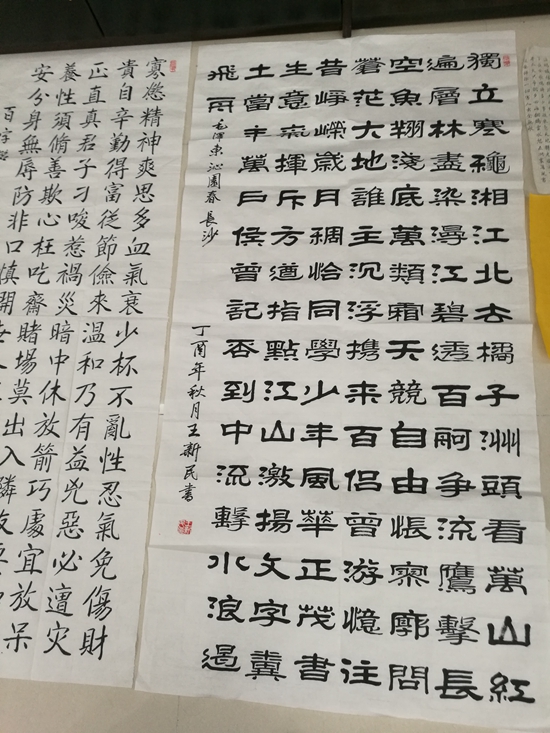 獨立寒穐湘江北去橘子洲頭看萬山紅
遍層林盡染漫江碧透百舸爭流鷹擊長
空魚翔淺底萬類霜天競自由悵寥廓問
蒼茫大地誰主沉浮携来百侣曾游憶往
昔崢嶸歲月稠恰同學少年風華正茂書
生意氣揮斥方遒指點江山激揚文字糞
土當年萬戶侯曾記否到中流擊水浪遏
飛舟
毛澤東沁園春長沙
丁酉年秋月王新民書
寡慾精神爽思多血氣衰少杯不亂性忍氣免傷財
貴自辛勤得富從節儉來温和乃有益兇惡必遭灾
正直真君子刁唆惹禍災暗中休放箭巧處宜放呆
養性須脩善欺心枉吃齋賭場莫出入隣友要和
安分身無辱防非口慎開
百字